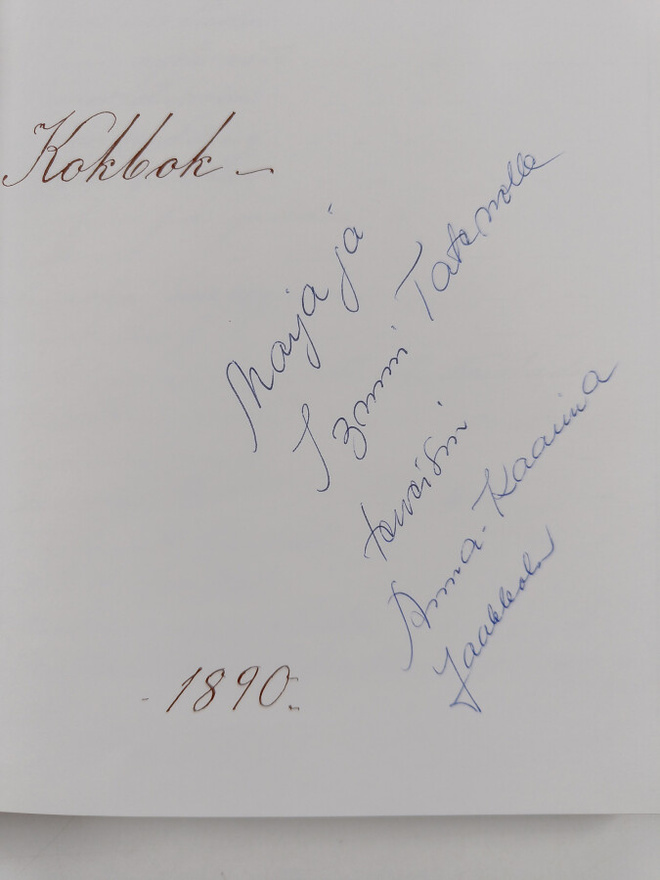 Kokbok –
Maija ja
Izmni Tatanolle
toivoisin
Anna-Kaarina
Jaakkola
- 1890.